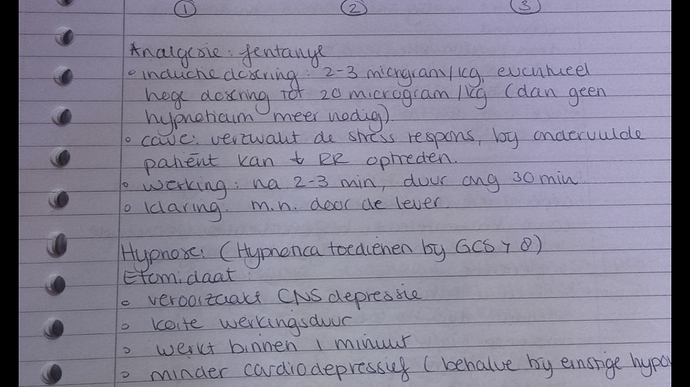 ① ② ③
Analgesie: fentanyl
• inductiedosering: 2-3 microgram/kg, eventueel
hoge dosering tot 20 microgram/kg (dan geen
hypnoticum meer nodig)
• cave: verzwakt de stress respons, by ondervulde
patiënt kan ↓ RR optreden.
• werking: na 2-3 min, duur ong 30 min
• klaring: m.n. door de lever.
Hypnose: (Hypnotica toedienen by GCS > 8)
Etomidaat:
• veroorzaakt CNS depressie
• korte werkingsduur
• werkt binnen 1 minuut
• minder cardiodepressief (behalve by ernstige hypo